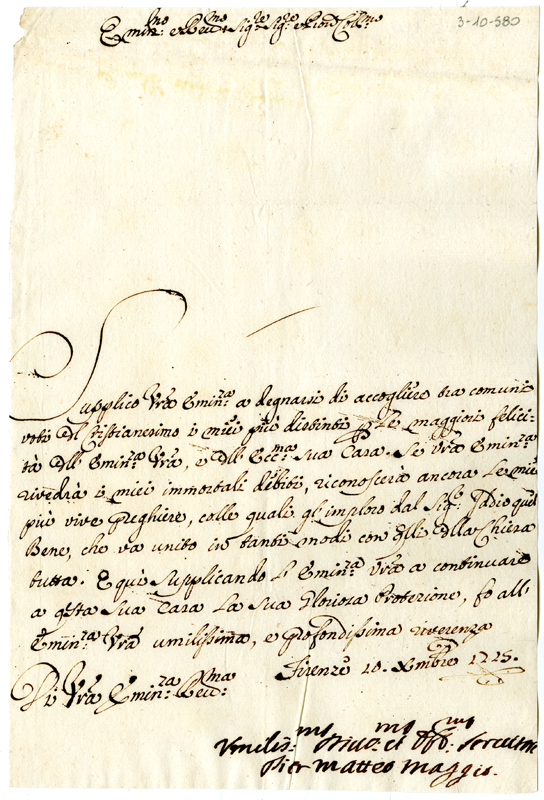 3-10-580
Emin:mo e Rev:mo Sig:re Sig:re e Pron Coll:mo
Supplico Vrã Emin:za a degnarsi di accogliere tra comuni
voti del Cristianesimo i miei più distinti per le maggiori felici-
tà dell' Emin:za Vrã, e dell' Ecc:ma Sua Casa. Se Vrã Emin:za
rivedrà i miei immortali debiti, riconoscerà ancora le mie
più vive preghiere, colle quali gl' imploro dal Sig:re Iddio quel
Bene, che va unito in tanti modi con quello della Chiesa
tutta. E qui supplicando l' Emin:za Vrã a continuare
a qsta sua Casa la sua gloriosa Protezione, fo all'
Emin:za Vrã umilissima, e profondissima riverenza
Di Vrã Emin:za Rev:ma
Firenze 10. Xmbre 1725.
Umilis:mo Divo:mo et Obb:mo Servitore
Pier Matteo Maggio.